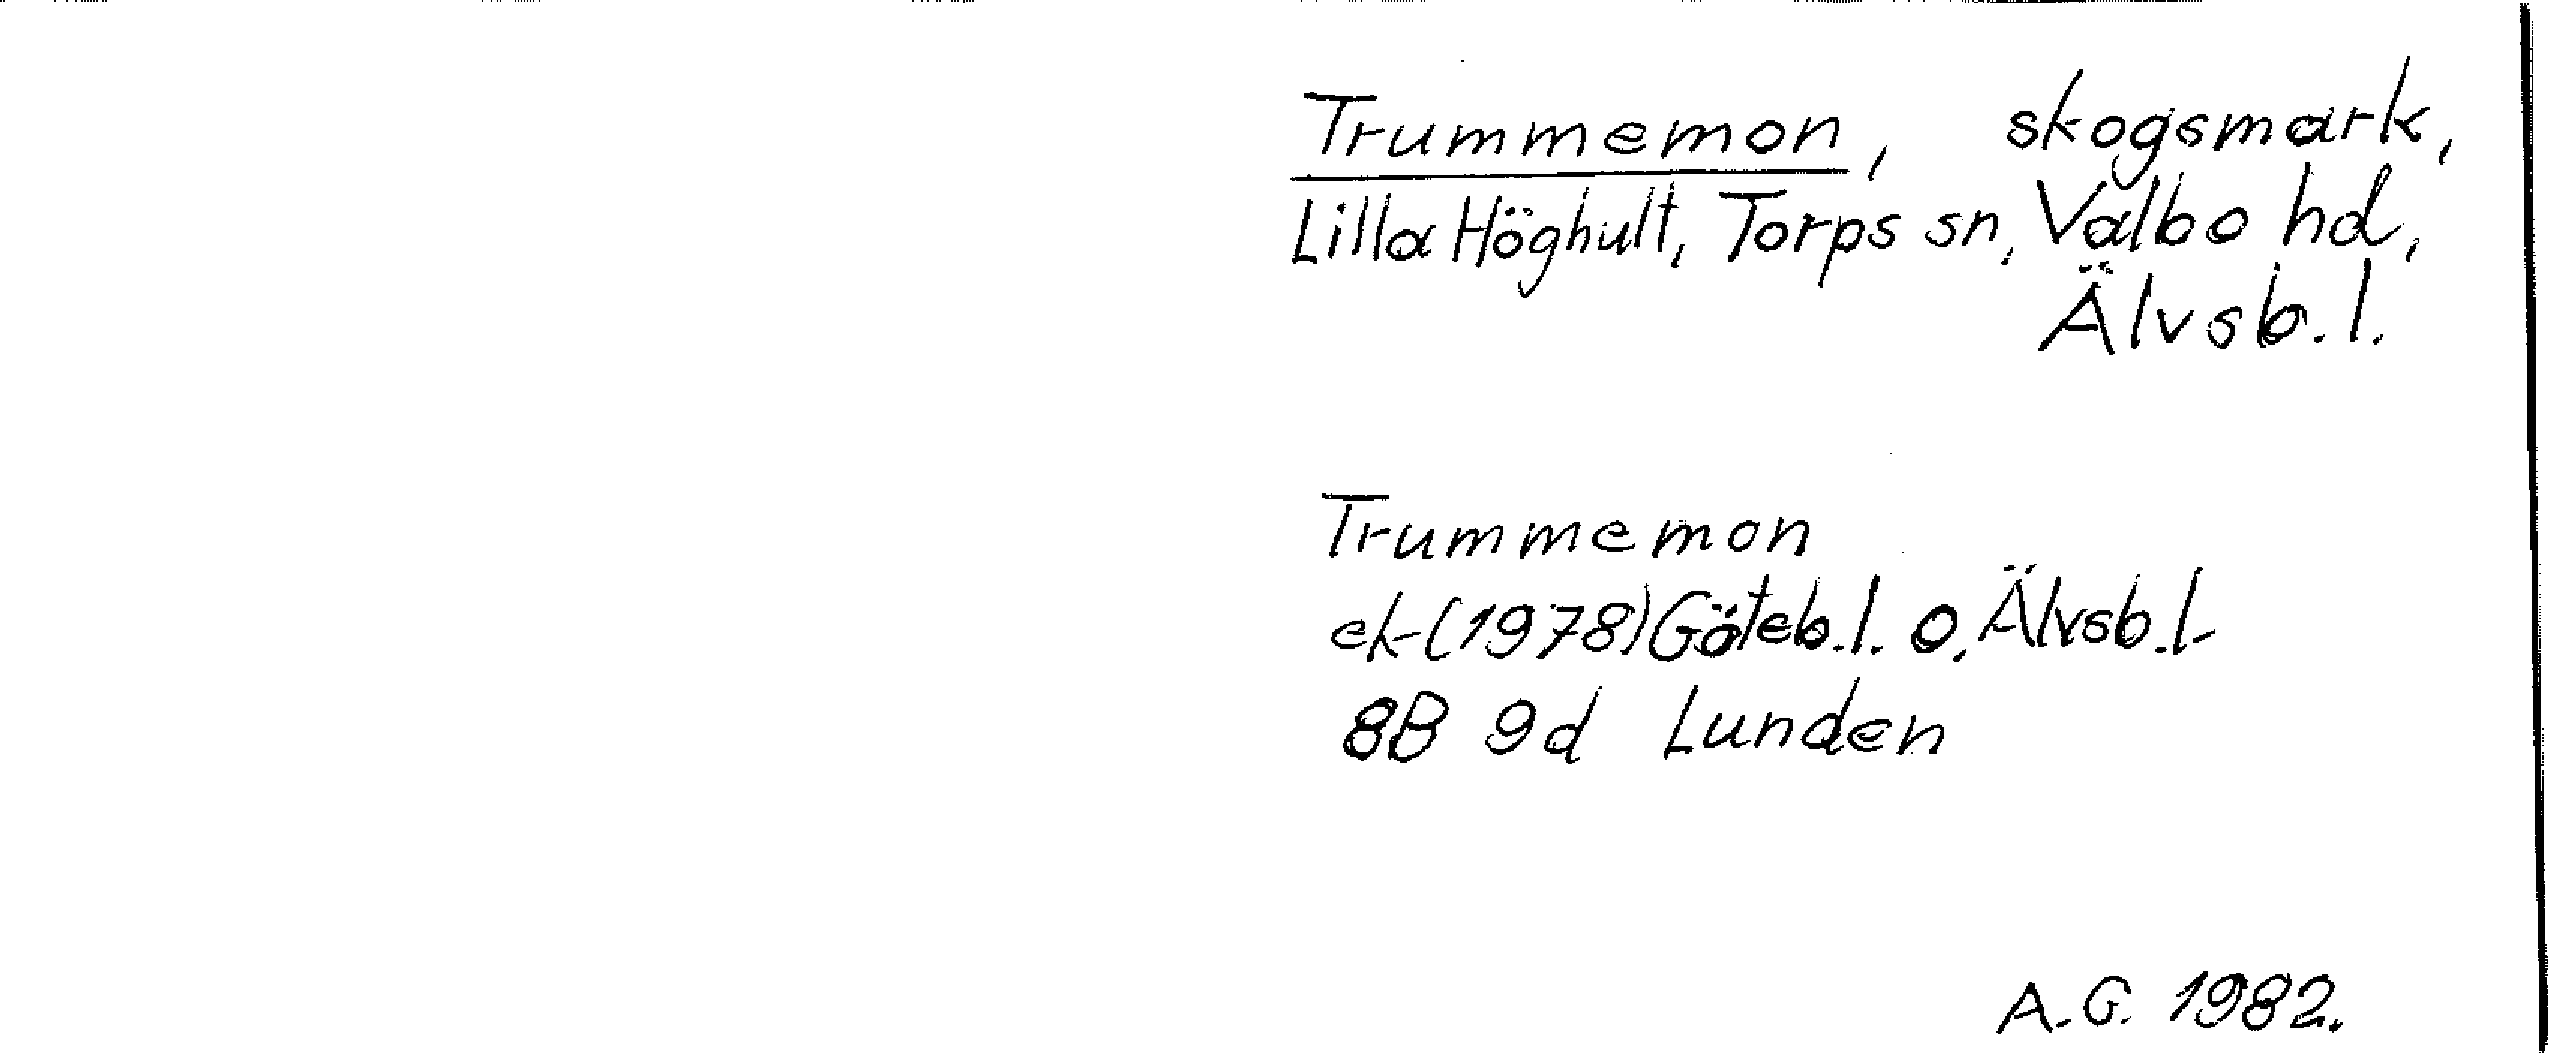 Trummemon, skogsmark,
Lilla Höghult, Torps sn, Valbo hd,
Älvsb. l.
Trummemon
ek (1978) Göteb. l. o. Älvsb. l.
8B 9d Lunden
A.G. 1982.